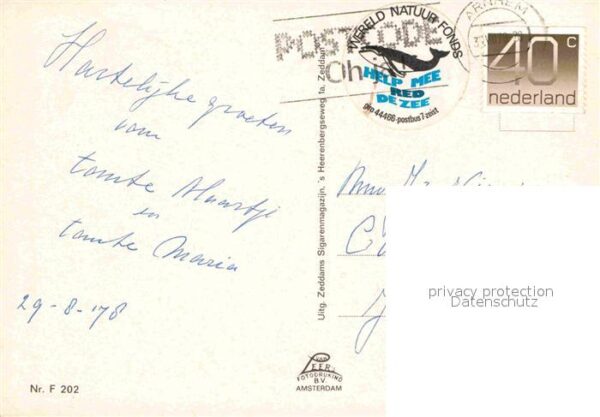 Hartelijke groeten
van
tante
en
tante Maria
29-8-'78
Nr. F 202
Uitg. Zeddams Sigarenmagazijn, 's Heerenbergseweg 1a, Zeddam
VAN LEER'S
FOTODRUKIND.
B.V.
AMSTERDAM
POSTCODE
ARNHEM
WERELD NATUUR FONDS
HELP MEE
RED
DE ZEE
giro 44466-postbus 7-zeist
40 c
nederland
privacy protection
Datenschutz